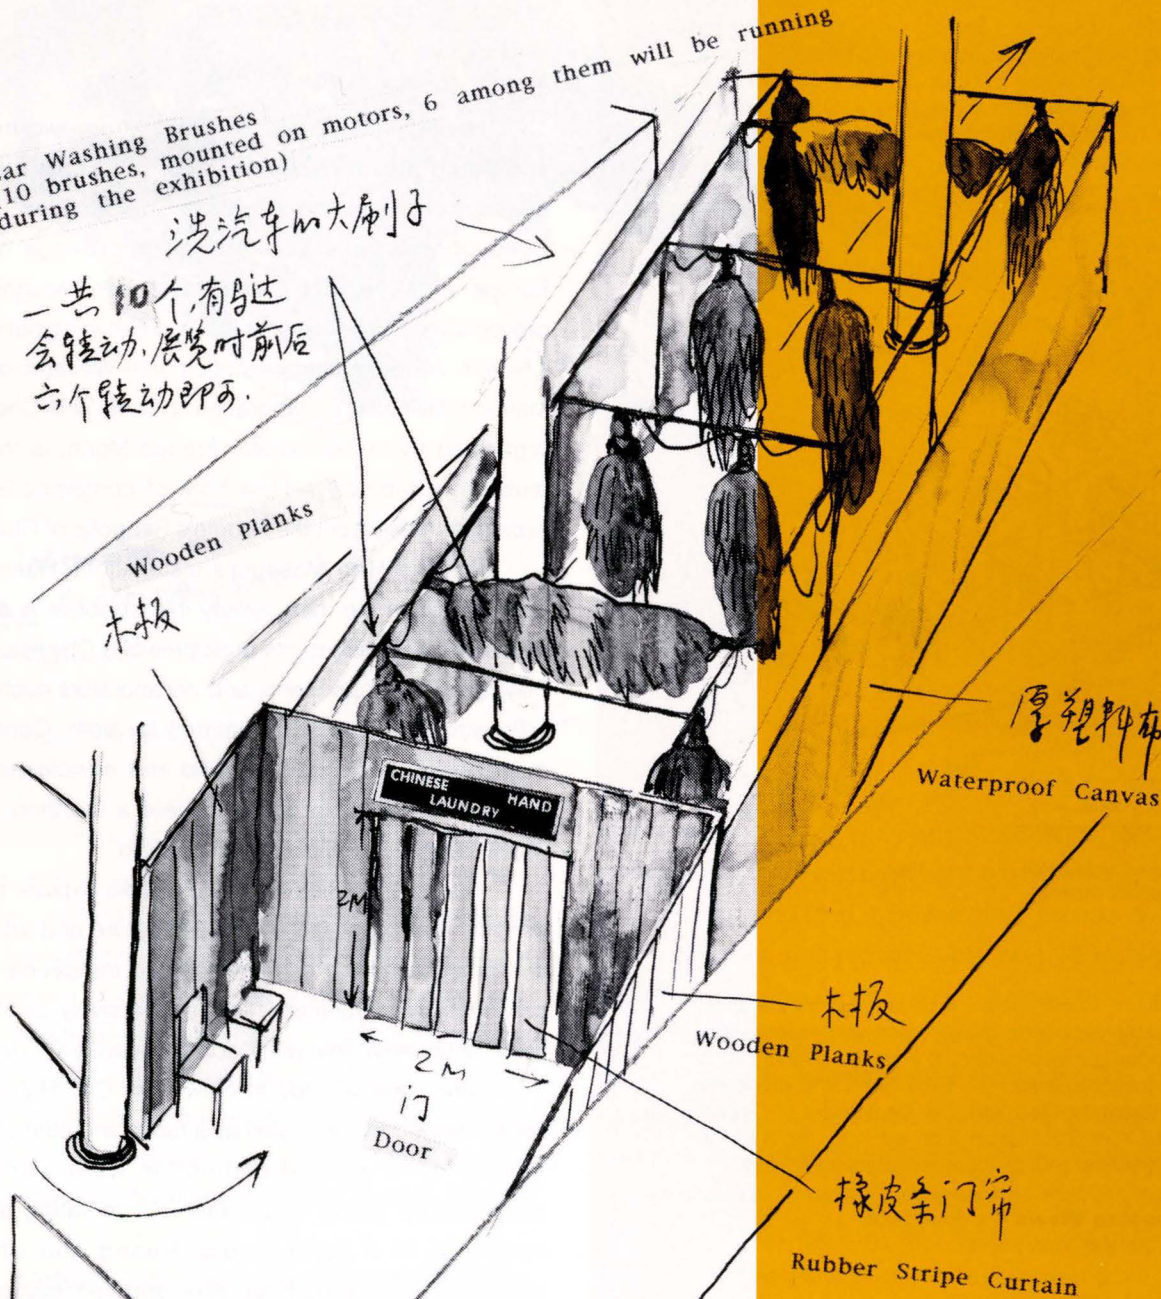 ar Washing Brushes
10 brushes, mounted on motors, 6 among them will be running
during the exhibition)
洗汽车的大刷子
一共10个,有马达
会转动、展览时前后
六个转动即可.
Wooden Planks
木板
CHINESE HAND
LAUNDRY
2M
2M
门
Door
厚塑料布
Waterproof Canvas
木板
Wooden Planks
橡皮条门帘
Rubber Stripe Curtain